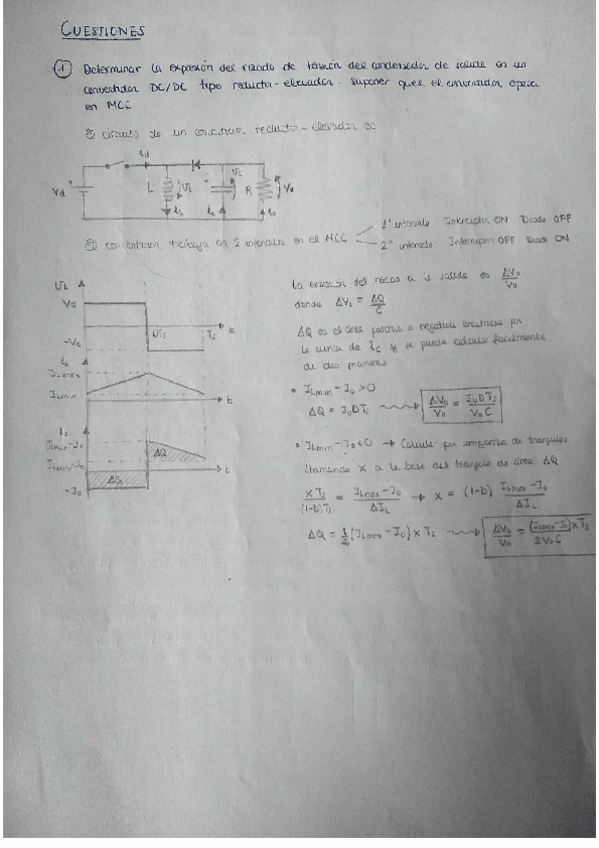 CUESTIONES
1 Determinar la expresión del rizado de tensión del condensador de salida en un
convertidor DC/DC tipo reductor-elevador. Suponer que el convertidor opera
en MCC
El circuito de un convertidor reductor-elevador es
id
Vd
L
VL
iL
R
Vo
El convertidor trabaja en 2 intervalos en el MCC
1º intervalo Interruptor ON Diodo OFF
2º intervalo: Interruptor OFF Diodo ON
VL
Vd
-Vo
DTs
Ts
t
ILmax
ILmin
t
ILmax-Io
ILmin-Io
ΔQ
ΔQ
-Io
t
La expresión del rizado a la salida es ΔVo/Vo
donde ΔVo = ΔQ/C
ΔQ es el área positiva o negativa encerrada por
la curva de ic y se puede calcular fácilmente
de dos maneras
• ILmin - Io > 0
ΔQ = IoDTs ⟿ ΔVo/Vo = IoDTs/VoC
• ILmin - Io < 0 → Calcular por semejanza de triángulos
Llamando x a la base del triángulo de área ΔQ
xTs/(1-D)Ts = ILmax-Io/ΔIL → x = (1-D) ILmax-Io/ΔIL
ΔQ = 1/2 (ILmax-Io) x Ts ⟿ ΔVo/Vo = (ILmax-Io)xTs/2VoC